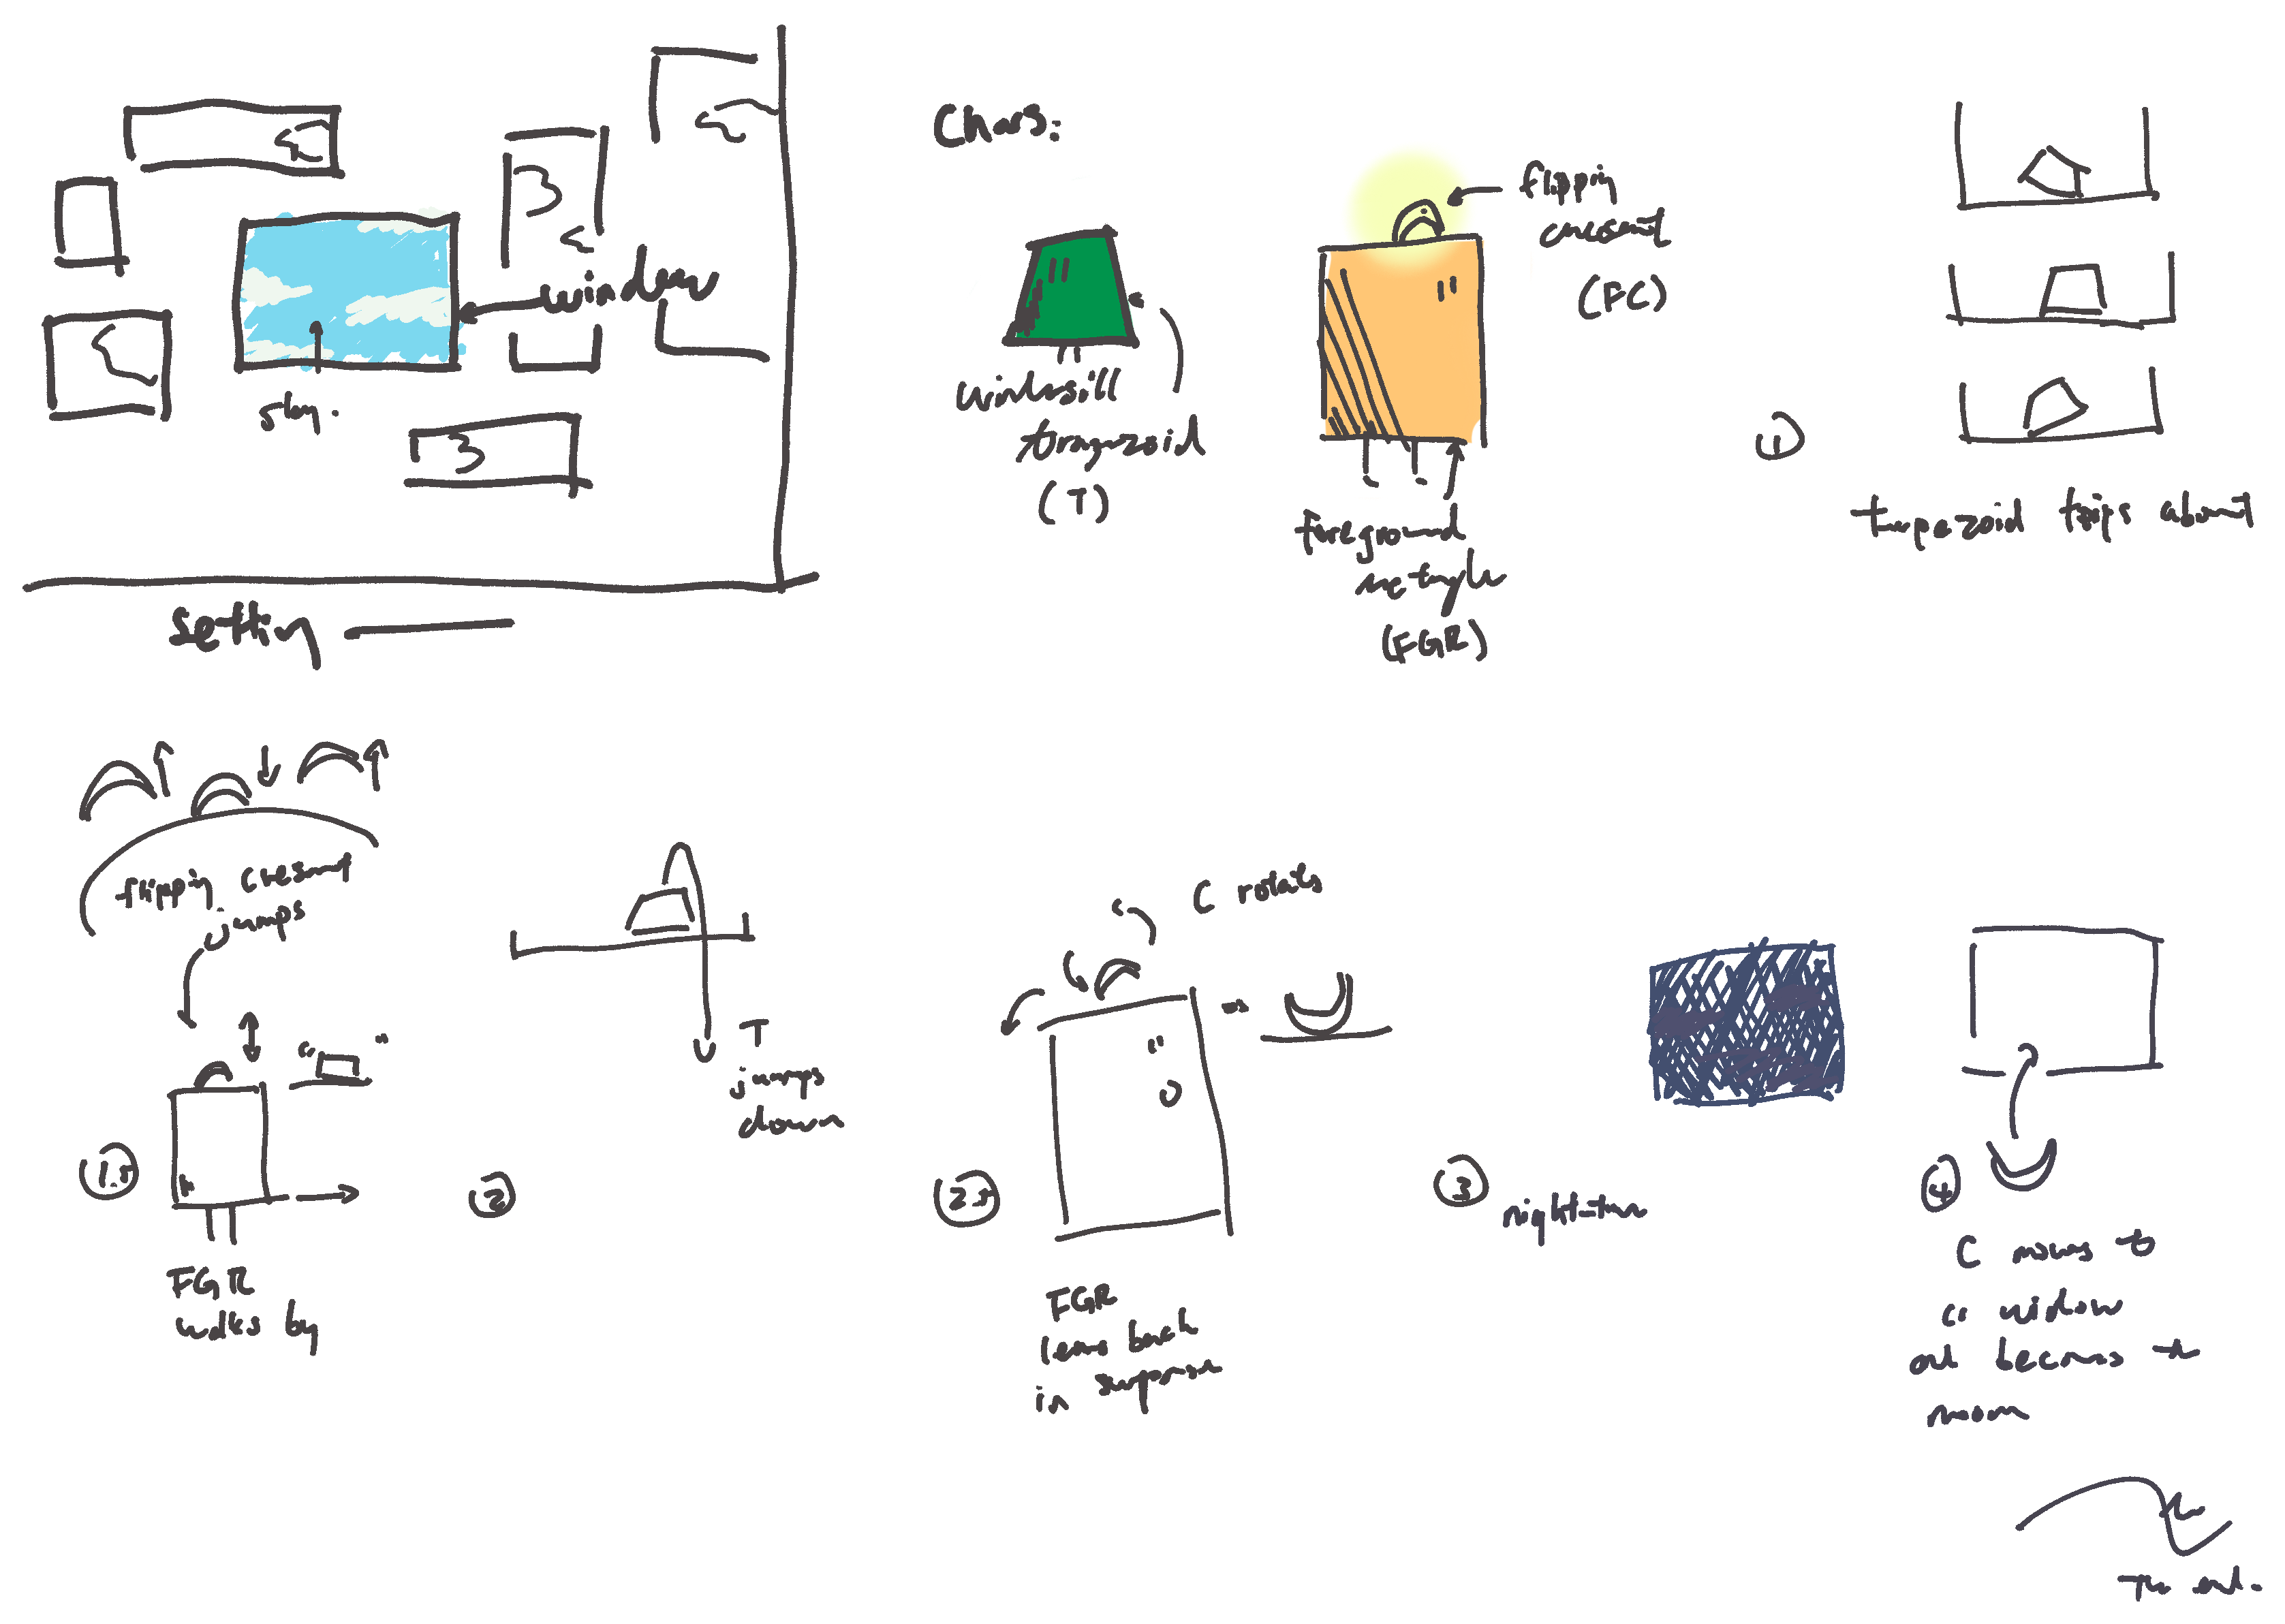 window
sky.
Setting
Chars:
windowsill
trapezoid
(T)
flippin
cresent
(FC)
foreground
rectangle
(FGR)
1
trapezoid trips about
flippin cresent
jumps
1.5
FGR
walks by
2
T
jumps
down
C rotates
2.5
FGR
leans back
in surprise
3
night-time
4
C moves to
window
and becomes the
moon
The end.